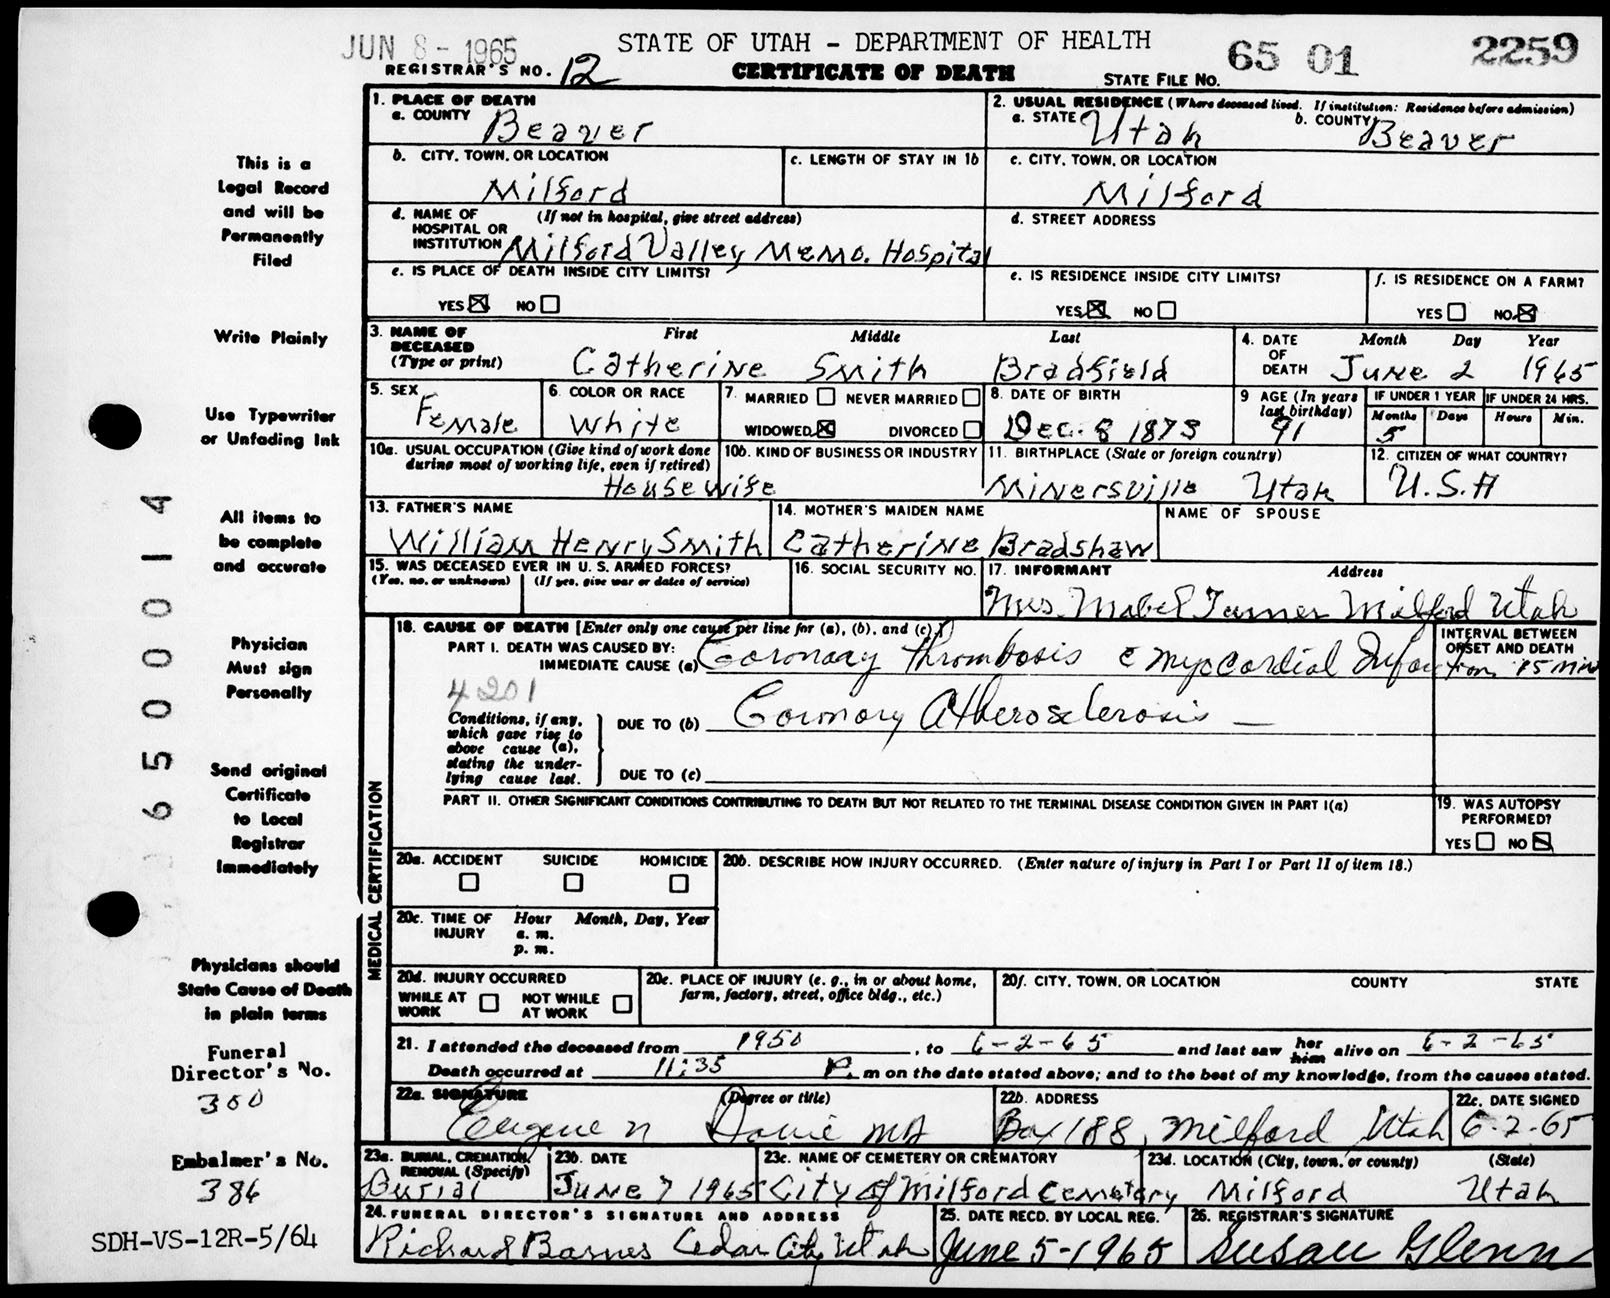 JUN 8 - 1965
STATE OF UTAH - DEPARTMENT OF HEALTH
65 01 2259
REGISTRAR'S NO. 12
CERTIFICATE OF DEATH
STATE FILE NO.
This is a
Legal Record
and will be
Permanently
Filed
Write Plainly
Use Typewriter
or Unfading Ink
All items to
be complete
and accurate
Physician
Must sign
Personally
Send original
Certificate
to Local
Registrar
Immediately
Physicians should
State Cause of Death
in plain terms
Funeral
Director's No.
300
Embalmer's No.
386
SDH-VS-12R-5/64
6500014
1. PLACE OF DEATH
a. COUNTY Beaver
2. USUAL RESIDENCE (Where deceased lived. If institution: Residence before admission)
a. STATE Utah b. COUNTY Beaver
b. CITY, TOWN, OR LOCATION Milford
c. LENGTH OF STAY IN 1b
c. CITY, TOWN, OR LOCATION Milford
d. NAME OF HOSPITAL OR INSTITUTION (If not in hospital, give street address) Milford Valley Memo. Hospital
d. STREET ADDRESS
e. IS PLACE OF DEATH INSIDE CITY LIMITS?
YES ☒ NO ☐
e. IS RESIDENCE INSIDE CITY LIMITS?
YES ☒ NO ☐
f. IS RESIDENCE ON A FARM?
YES ☐ NO ☒
3. NAME OF DECEASED (Type or print) First Middle Last
Catherine Smith Bradfield
4. DATE OF DEATH Month Day Year
June 2 1965
5. SEX Female
6. COLOR OR RACE White
7. MARRIED ☐ NEVER MARRIED ☐
WIDOWED ☒ DIVORCED ☐
8. DATE OF BIRTH Dec. 8 1873
9 AGE (In years last birthday) 91
IF UNDER 1 YEAR Months 5 Days
IF UNDER 24 HRS. Hours Min.
10a. USUAL OCCUPATION (Give kind of work done during most of working life, even if retired) Housewife
10b. KIND OF BUSINESS OR INDUSTRY
11. BIRTHPLACE (State or foreign country) Minersville Utah
12. CITIZEN OF WHAT COUNTRY? U.S.A
13. FATHER'S NAME William Henry Smith
14. MOTHER'S MAIDEN NAME Catherine Bradshaw
NAME OF SPOUSE
15. WAS DECEASED EVER IN U. S. ARMED FORCES?
(Yes, no, or unknown) (If yes, give war or dates of service)
16. SOCIAL SECURITY NO.
17. INFORMANT Address
Mrs. Mabel Turner Milford Utah
MEDICAL CERTIFICATION
18. CAUSE OF DEATH [Enter only one cause per line for (a), (b), and (c).]
INTERVAL BETWEEN ONSET AND DEATH
PART I. DEATH WAS CAUSED BY:
IMMEDIATE CAUSE (a) Coronary Thrombosis c Myocardial Infarction 15 min
4201
Conditions, if any, which gave rise to above cause (a), stating the underlying cause last.
DUE TO (b) Coronary Atherosclerosis —
DUE TO (c)
PART II. OTHER SIGNIFICANT CONDITIONS CONTRIBUTING TO DEATH BUT NOT RELATED TO THE TERMINAL DISEASE CONDITION GIVEN IN PART I(a)
19. WAS AUTOPSY PERFORMED?
YES ☐ NO ☒
20a. ACCIDENT SUICIDE HOMICIDE
20b. DESCRIBE HOW INJURY OCCURRED. (Enter nature of injury in Part I or Part II of item 18.)
20c. TIME OF INJURY Hour Month, Day, Year
a. m.
p. m.
20d. INJURY OCCURRED
WHILE AT WORK ☐ NOT WHILE AT WORK ☐
20e. PLACE OF INJURY (e. g., in or about home, farm, factory, street, office bldg., etc.)
20f. CITY, TOWN, OR LOCATION COUNTY STATE
21. I attended the deceased from 1950, to 6-2-65 and last saw her him alive on 6-2-65
Death occurred at 11:35 P. m on the date stated above; and to the best of my knowledge, from the causes stated.
22a. SIGNATURE (Degree or title)
Eugene N Davie MD
22b. ADDRESS
Box 188, Milford Utah
22c. DATE SIGNED
6-2-65
23a. BURIAL, CREMATION, REMOVAL (Specify)
Burial
23b. DATE
June 7 1965
23c. NAME OF CEMETERY OR CREMATORY
City of Milford Cemetary
23d. LOCATION (City, town, or county) (State)
Milford Utah
24. FUNERAL DIRECTOR'S SIGNATURE AND ADDRESS
Richard Barnes Cedar City Utah
25. DATE RECD. BY LOCAL REG.
June 5-1965
26. REGISTRAR'S SIGNATURE
Susan Glenn